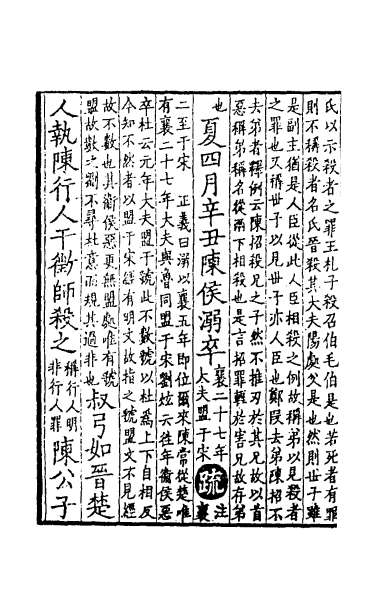 氏以示殺者之罪王札子殺召伯毛伯是也若死者有罪
則不稱殺者名氏晉殺其大夫陽處父是也然則世子雖
是副主猶是人臣從此人臣相殺之例故稱弟以見殺者
之罪也又稱世子以見世子亦人臣也鄭段去弟陳招不
去弟者釋例云陳招殺兄之子然不推刃於其兄故以首
惡稱弟稱名從兩下相殺也是言招罪輕於害兄故存弟
也 夏四月辛丑陳侯溺卒 襄二十七年大夫盟于宋 疏 注襄
二至于宋 正義曰溺以襄五年即位爾來陳常從楚唯
有襄二十七年大夫與魯同盟于宋劉炫云往年衞侯惡
卒杜云元年大夫盟于虢此不數虢以杜爲上下自相反
今知不然者以盟于宋經有明文故指之虢盟文不見經
故不數也其衞侯惡更無盟處唯有虢
盟故數之劉不尋杜意而規其過非也 叔弓如晉楚
人執陳行人干徵師殺之 稱行人明非行人罪 陳公子